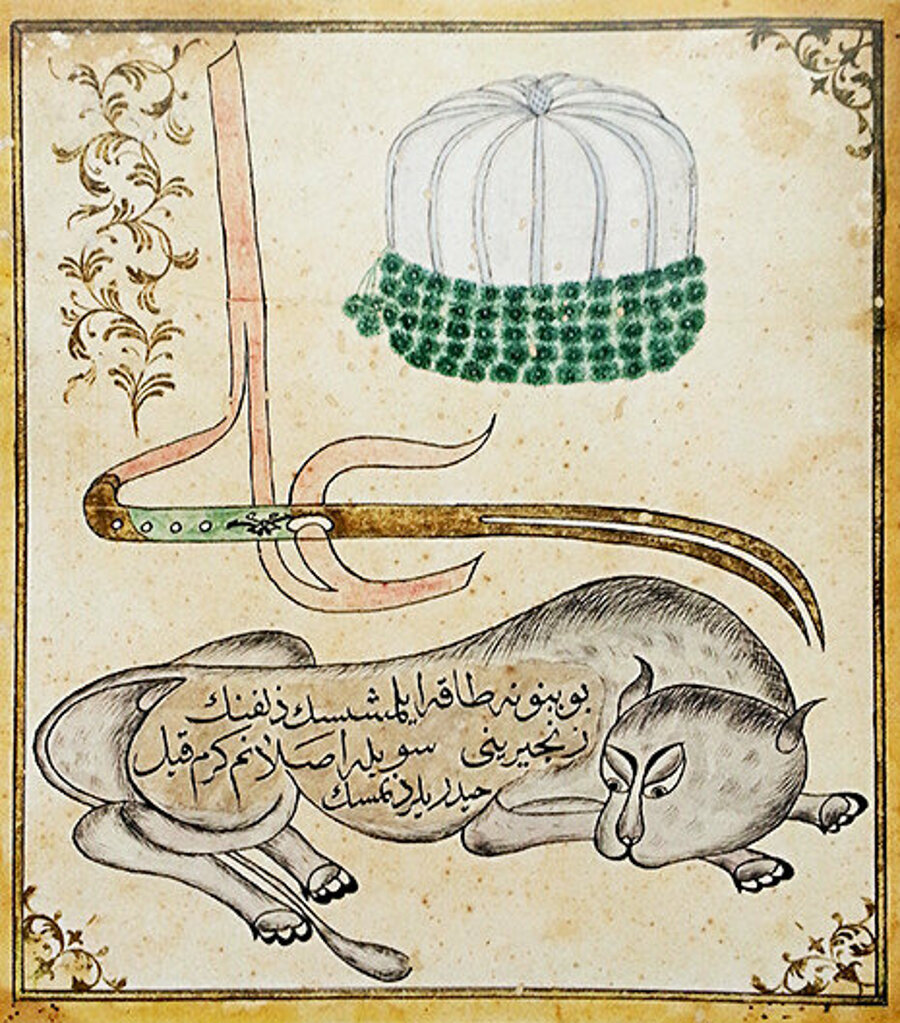 علی
بوينونه طاقه ايلمشسك ذلفنك
زنجيرينی سويله اصلانم كرم قيل
حيدريلردنمسك